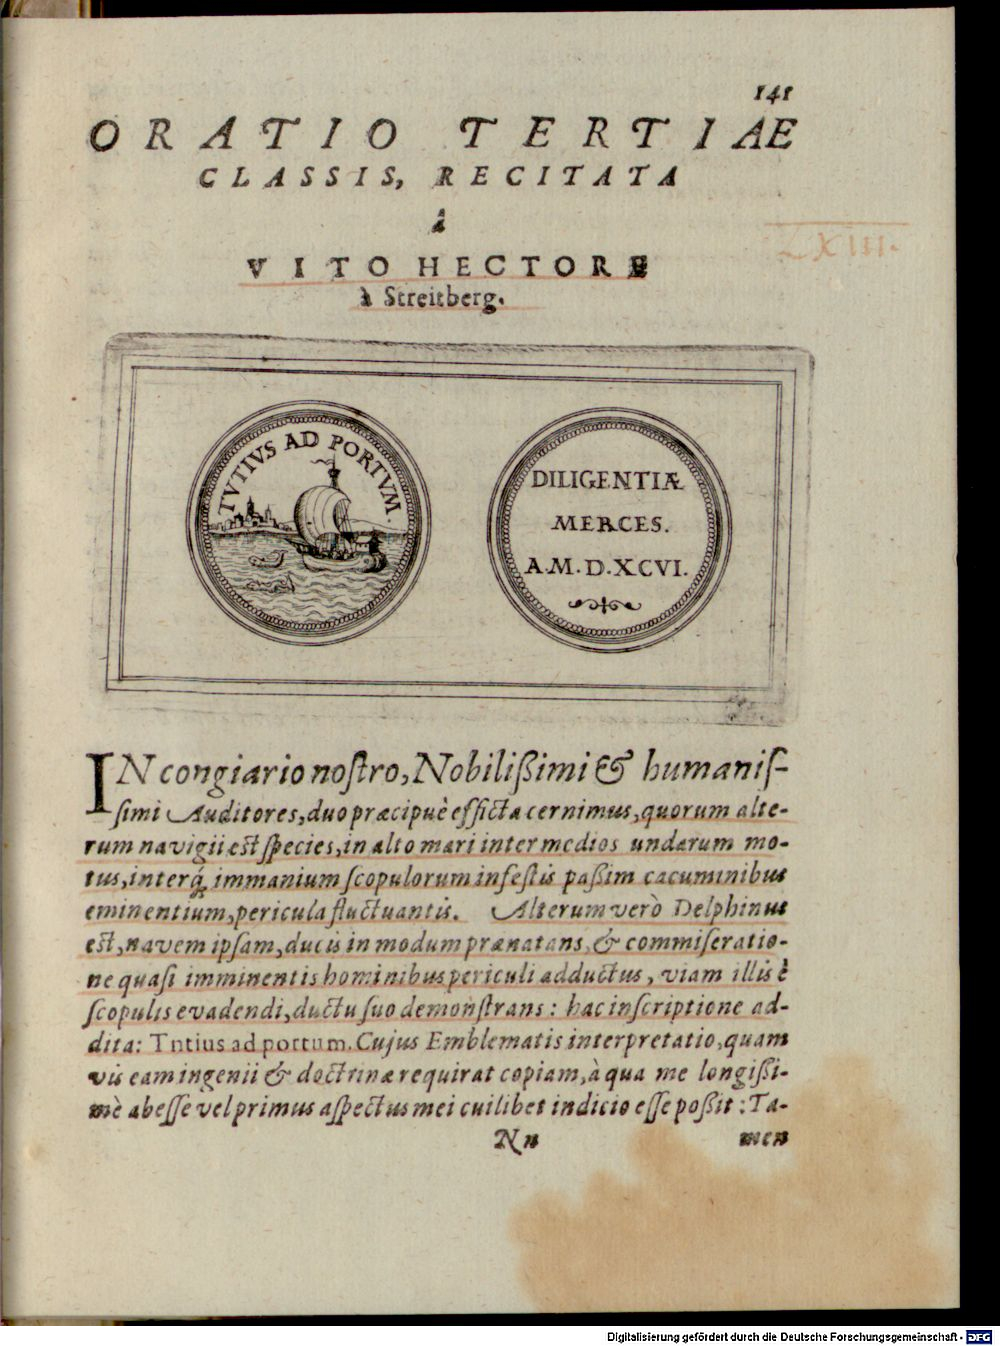 141
ORATIO TERTIAE
CLASSIS, RECITATA
â
VITO HECTORE
à Streitberg.
LXIII.
TVTIVS AD PORTVM.
DILIGENTIÆ
MERCES.
A.M.D.XCVI.
IN congiario nostro, Nobilißimi & humanis-
simi Auditores, duo præcipuè efficta cernimus, quorum alte-
rum navigii est species, in alto mari inter medios undarum mo-
tus, interq́; immanium scopulorum infestis paßim cacuminibus
eminentium, pericula fluctuantis. Alterum verò Delphinus
est, navem ipsam, ducis in modum prænatans, & commiseratio-
ne quasi imminentis hominibus periculi adductus, viam illis è
scopulis evadendi, ductu suo demonstrans: hac inscriptione ad-
dita: Tntius ad portum. Cujus Emblematis interpretatio, quam
vis eam ingenii & doctrinæ requirat copiam, à qua me longißi-
mè abesse vel primus aspectus mei cuilibet indicio esse poßit: Ta-
Nn men
Digitalisierung gefördert durch die Deutsche Forschungsgemeinschaft - DFG